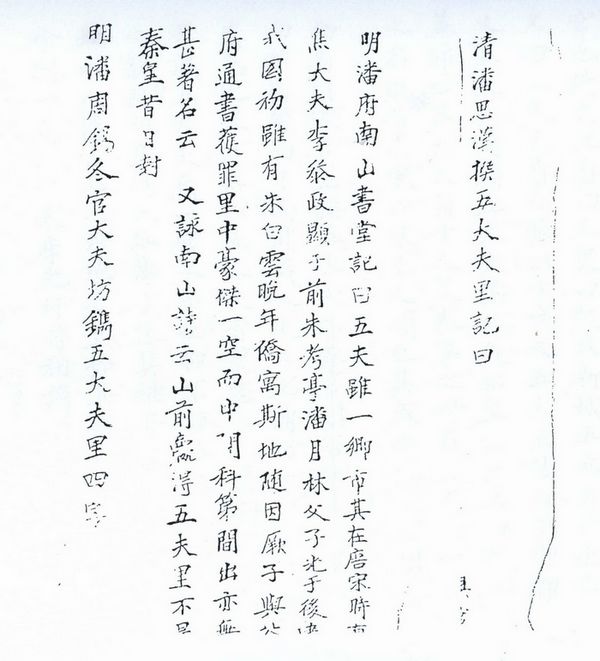 清潘思漢撰五大夫里記曰
明潘府南山書堂記曰五夫雖一鄉市其在唐宋時有
焦大夫李參政顯于前朱考亭潘月林父子光于後
我國初雖有朱白雲晚年僑寓斯地随因厥子與
府通書獲罪里中豪傑一空而中間科第間出亦無
甚著名云 又詠南山詩云山前贏得五夫里不是
秦皇昔日封
明潘周錫冬官大夫坊鐫五大夫里四字